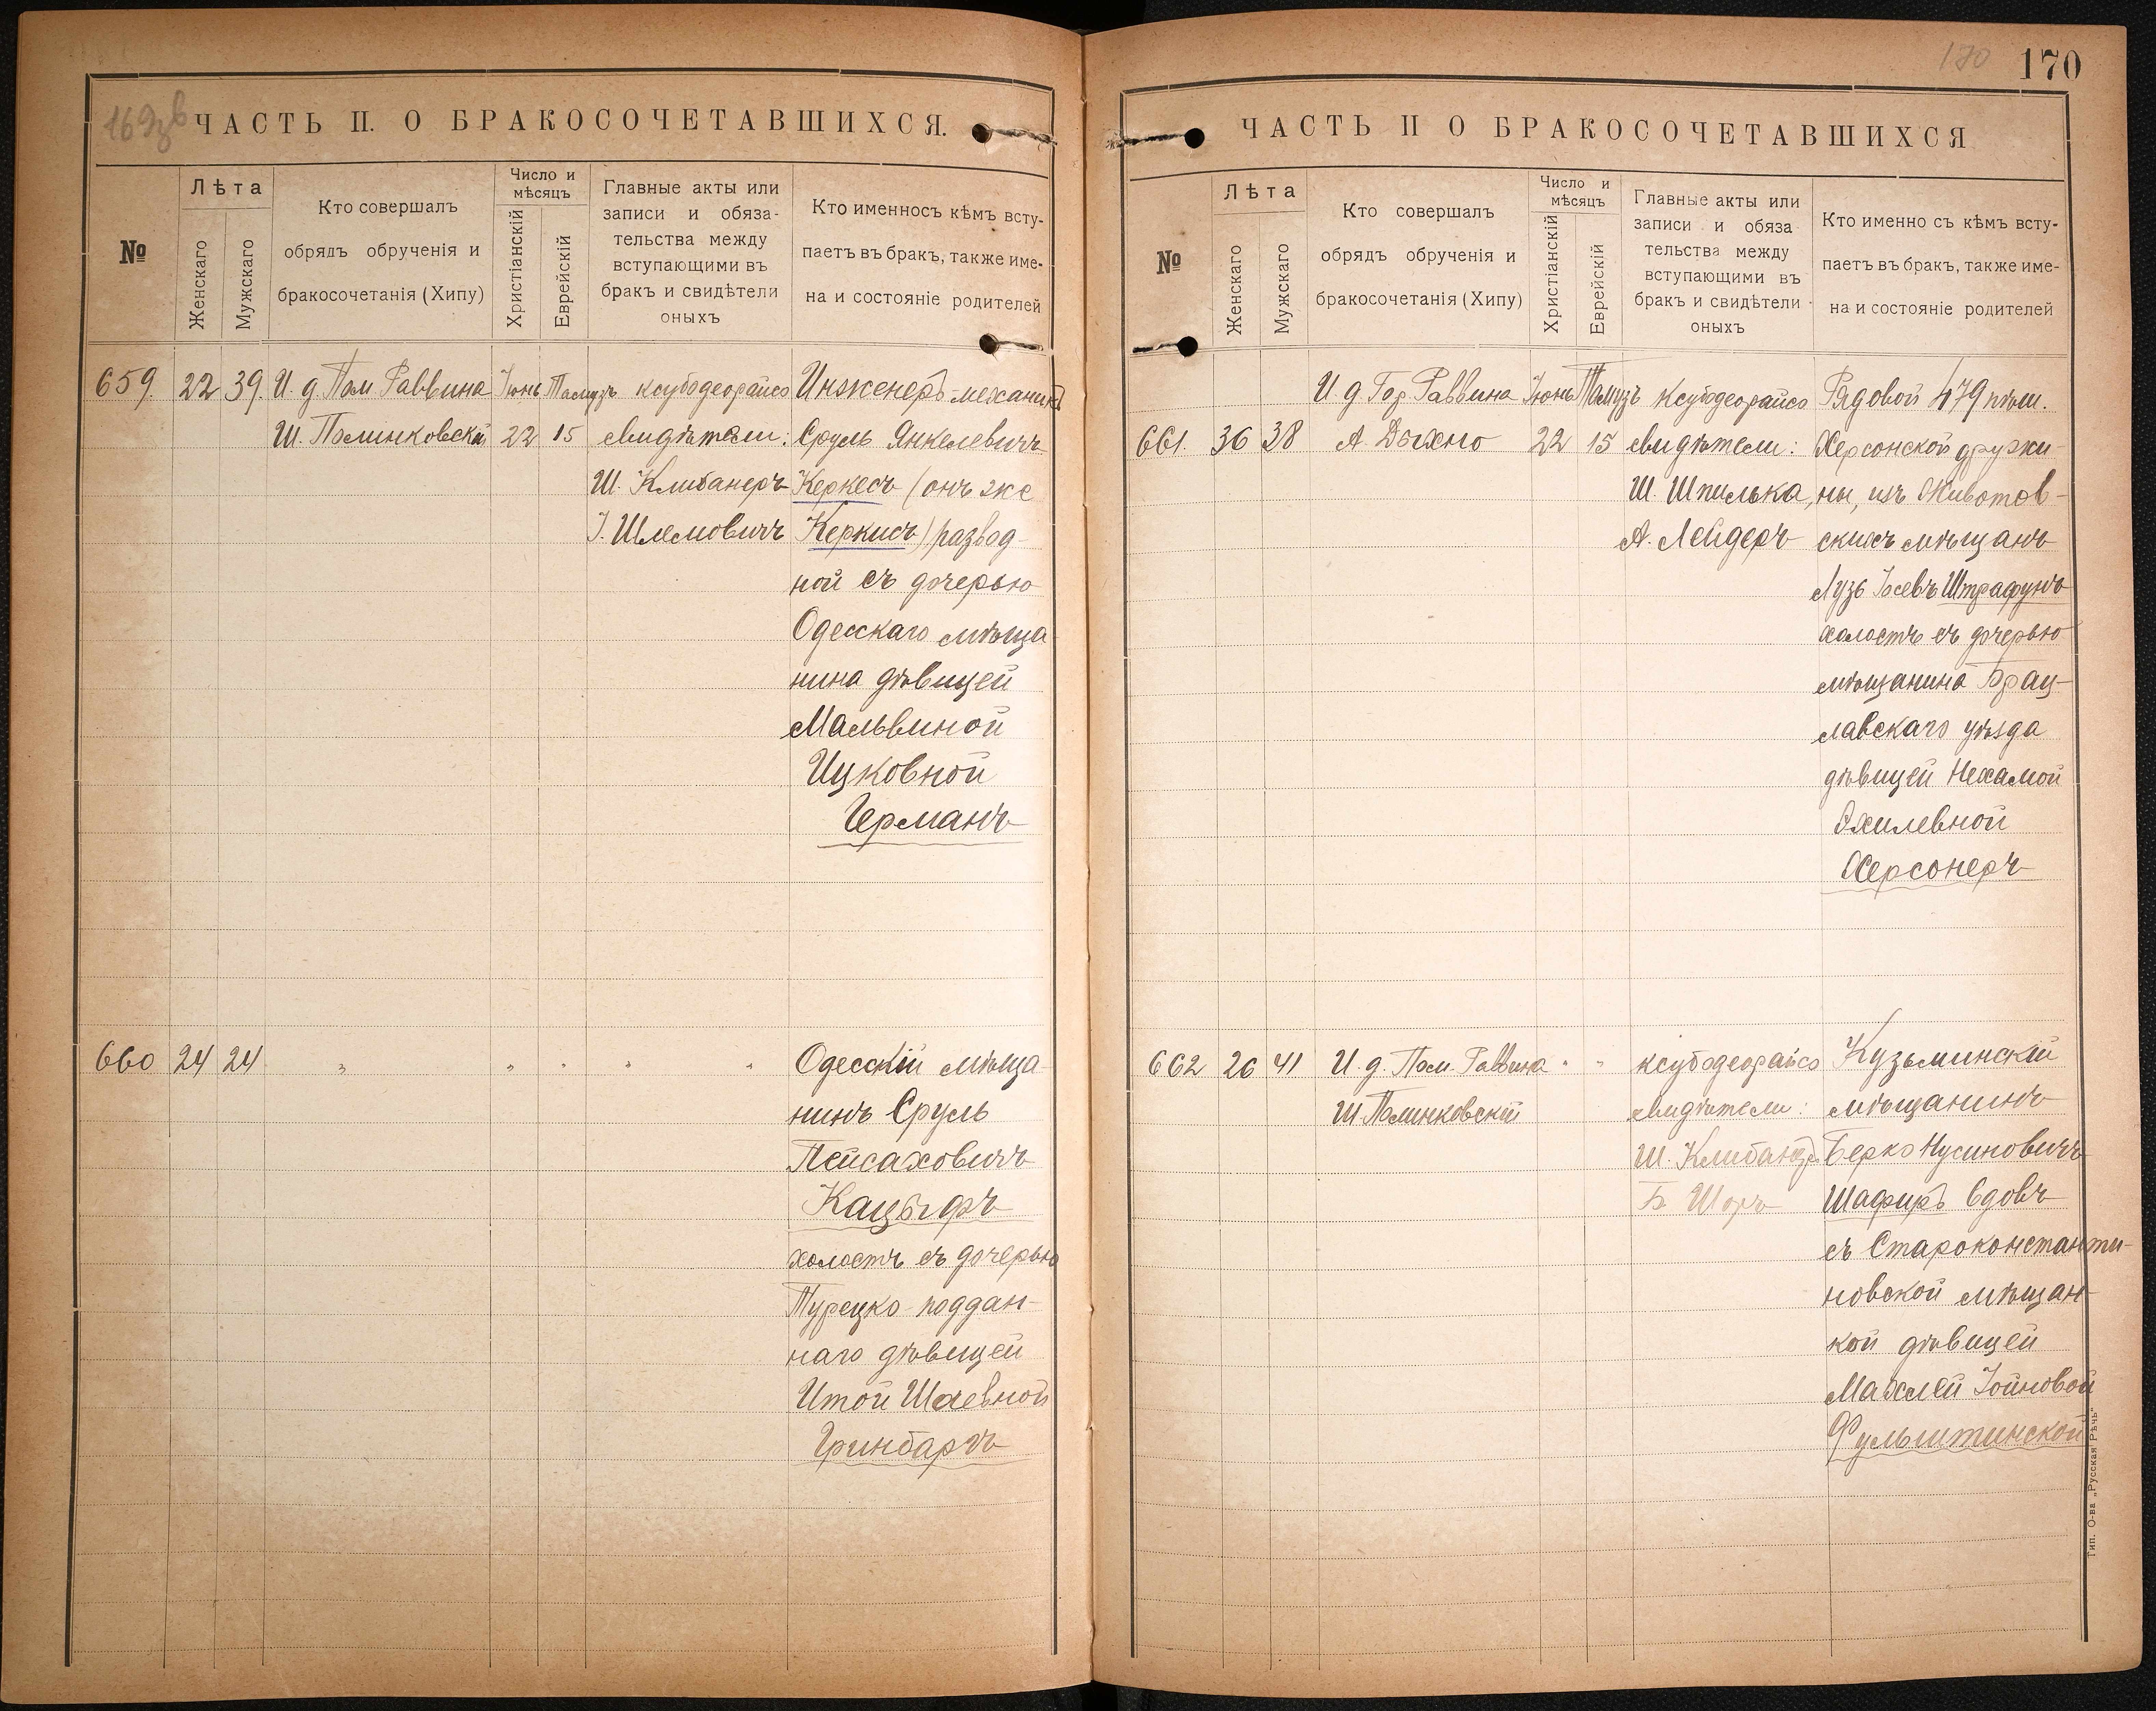 169зв
ЧАСТЬ II. О БРАКОСОЧЕТАВШИХСЯ.
№
Лѣта
Женскаго
Мужскаго
Кто совершалъ
обрядъ обрученія и
бракосочетанія (Хипу)
Число и
мѣсяцъ
Христіанскій
Еврейскій
Главные акты или
записи и обяза-
тельства между
вступающими въ
бракъ и свидѣтели
оныхъ
Кто именносъ кѣмъ всту-
паетъ въ бракъ, также име-
на и состояніе родителей
659. 22 39. И. д. Пом Раввина Іюнь Тамузъ ксубодеорайсо Инженеръ-механикъ
Ш. Полинковскій 22 15 свидѣтели: Сруль Янкелевичъ
Ш. Клибанеръ Керкесъ (онъ же
І. Шлемовичъ Керкисъ) развод-
ной съ дочерью
Одесскаго мѣща-
нина дѣвицей
Мальвиной
Ицковной
Германъ
660 24 24 " " " " " Одесскій мѣща-
нинъ Сруль
Пейсаховичъ
Кацыфъ
холостъ съ дочерью
Турецко поддан-
наго дѣвицей
Итой Шаевной
Гринбаргъ
170 170
ЧАСТЬ II О БРАКОСОЧЕТАВШИХСЯ
№
Лѣта
Женскаго
Мужскаго
Кто совершалъ
обрядъ обрученія и
бракосочетанія (Хипу)
Число и
мѣсяцъ
Христіанскій
Еврейскій
Главные акты или
записи и обяза
тельства между
вступающими въ
бракъ и свидѣтели
оныхъ
Кто именно съ кѣмъ всту-
паетъ въ бракъ, также име-
на и состояніе родителей
И. д. Гор. Раввина Іюнь Тамузъ ксубодеорайсо Рядовой 479 пѣш.
661. 36 38 А. Дыхно 22 15 свидѣтели: Херсонской дружи-
Ш. Шпилька, ны, изъ Животов-
А. Лейдеръ скихъ мѣщанъ
Лузъ Іосевъ Штрафунъ
холостъ съ дочерью
мѣщанина Брац-
лавскаго уѣзда
дѣвицей Нехамой
Эхилевной
Херсонеръ
662 26 41 И. д. Пом. Раввина " " ксубодеорайсо Кузьминскій
Ш. Полинковскій свидѣтели: мѣщанинъ
Ш. Клибанеръ Берко Нусиновичъ
Б. Шоръ Шафиръ вдовъ
съ Староконстанти-
новской мѣщан-
кой дѣвицей
Махлей Іойновой
Фульштинской
Тип. О-ва „Русская Рѣчь"